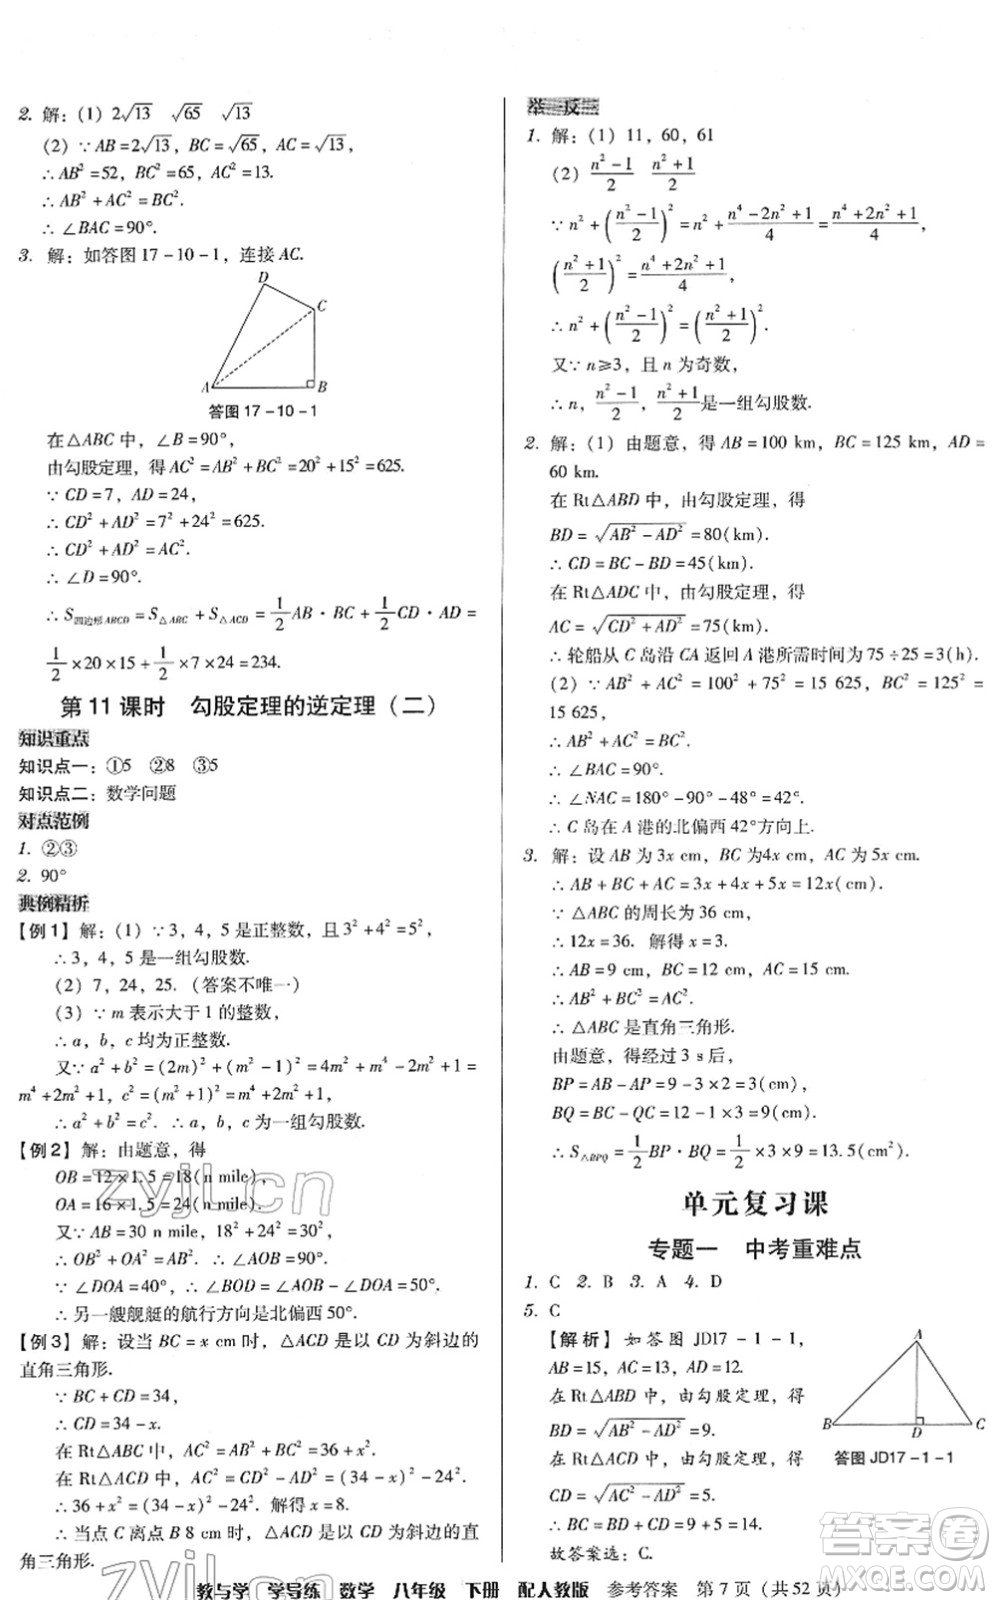 2. 解：(1) 2√13　√65　√13
(2) ∵ AB=2√13, BC=√65, AC=√13,
∴ AB²=52, BC²=65, AC²=13.
∴ AB²+AC²=BC².
∴ ∠BAC=90°.
3. 解：如答图 17-10-1，连接 AC.
D
C
A
B
答图 17-10-1
在△ABC 中，∠B=90°,
由勾股定理，得 AC²=AB²+BC²=20²+15²=625.
∵ CD=7, AD=24,
∴ CD²+AD²=7²+24²=625.
∴ CD²+AD²=AC².
∴ ∠D=90°.
∴ S四边形ABCD=S△ABC+S△ACD=1/2 AB·BC+1/2 CD·AD=
1/2×20×15+1/2×7×24=234.
第 11 课时　勾股定理的逆定理（二）
知识重点
知识点一：①5　②8　③5
知识点二：数学问题
对点范例
1. ②③
2. 90°
典例精析
【例1】解：(1) ∵ 3, 4, 5 是正整数，且 3²+4²=5²,
∴ 3, 4, 5 是一组勾股数.
(2) 7, 24, 25.（答案不唯一）
(3) ∵ m 表示大于 1 的整数，
∴ a, b, c 均为正整数.
又∵ a²+b²=(2m)²+(m²-1)²=4m²+m⁴-2m²+1=
m⁴+2m²+1, c²=(m²+1)²=m⁴+2m²+1,
∴ a²+b²=c². ∴ a, b, c 为一组勾股数.
【例2】解：由题意，得
OB=12×1.5=18(n mile),
OA=16×1.5=24(n mile).
又∵ AB=30 n mile, 18²+24²=30²,
∴ OB²+OA²=AB². ∴ ∠AOB=90°.
∵ ∠DOA=40°, ∴ ∠BOD=∠AOB-∠DOA=50°.
∴ 另一艘舰艇的航行方向是北偏西 50°.
【例3】解：设当 BC=x cm 时，△ACD 是以 CD 为斜边的
直角三角形.
∵ BC+CD=34,
∴ CD=34-x.
在 Rt△ABC 中，AC²=AB²+BC²=36+x².
在 Rt△ACD 中，AC²=CD²-AD²=(34-x)²-24².
∴ 36+x²=(34-x)²-24². 解得 x=8.
∴ 当点 C 离点 B 8 cm 时，△ACD 是以 CD 为斜边的直
角三角形.
举一反三
1. 解：(1) 11, 60, 61
(2) (n²-1)/2　(n²+1)/2
∵ n²+((n²-1)/2)²=n²+(n⁴-2n²+1)/4=(n⁴+2n²+1)/4,
((n²+1)/2)²=(n⁴+2n²+1)/4,
∴ n²+((n²-1)/2)²=((n²+1)/2)².
又∵ n≥3，且 n 为奇数，
∴ n, (n²-1)/2, (n²+1)/2 是一组勾股数.
2. 解：(1) 由题意，得 AB=100 km, BC=125 km, AD=
60 km.
在 Rt△ABD 中，由勾股定理，得
BD=√(AB²-AD²)=80(km).
∴ CD=BC-BD=45(km).
在 Rt△ADC 中，由勾股定理，得
AC=√(CD²+AD²)=75(km).
∴ 轮船从 C 岛沿 CA 返回 A 港所需时间为 75÷25=3(h).
(2) ∵ AB²+AC²=100²+75²=15 625, BC²=125²=
15 625,
∴ AB²+AC²=BC².
∴ ∠BAC=90°.
∴ ∠NAC=180°-90°-48°=42°.
∴ C 岛在 A 港的北偏西 42°方向上.
3. 解：设 AB 为 3x cm, BC 为 4x cm, AC 为 5x cm.
∴ AB+BC+AC=3x+4x+5x=12x(cm).
∵ △ABC 的周长为 36 cm,
∴ 12x=36. 解得 x=3.
∴ AB=9 cm, BC=12 cm, AC=15 cm.
∴ AB²+BC²=AC².
∴ △ABC 是直角三角形.
由题意，得经过 3 s后，
BP=AB-AP=9-3×2=3(cm),
BQ=BC-CQ=12-1×3=9(cm).
∴ S△BPQ=1/2 BP·BQ=1/2×3×9=13.5(cm²).
单元复习课
专题一　中考重难点
1. C 2. B 3. A 4. D
5. C
【解析】如答图 JD17-1-1,
AB=15, AC=13, AD=12.
在 Rt△ABD 中，由勾股定理，得
BD=√(AB²-AD²)=9.
在 Rt△ACD 中，由勾股定理，得
CD=√(AC²-AD²)=5.
∴ BC=BD+CD=9+5=14.
故答案选：C.
A
B
D
C
答图 JD17-1-1
zyjl.cn
zyjl.cn
答案圈
MXQE.COM
教与学　学导练　数学　八年级　下册　配人教版　参考答案　第 7 页（共 52 页）